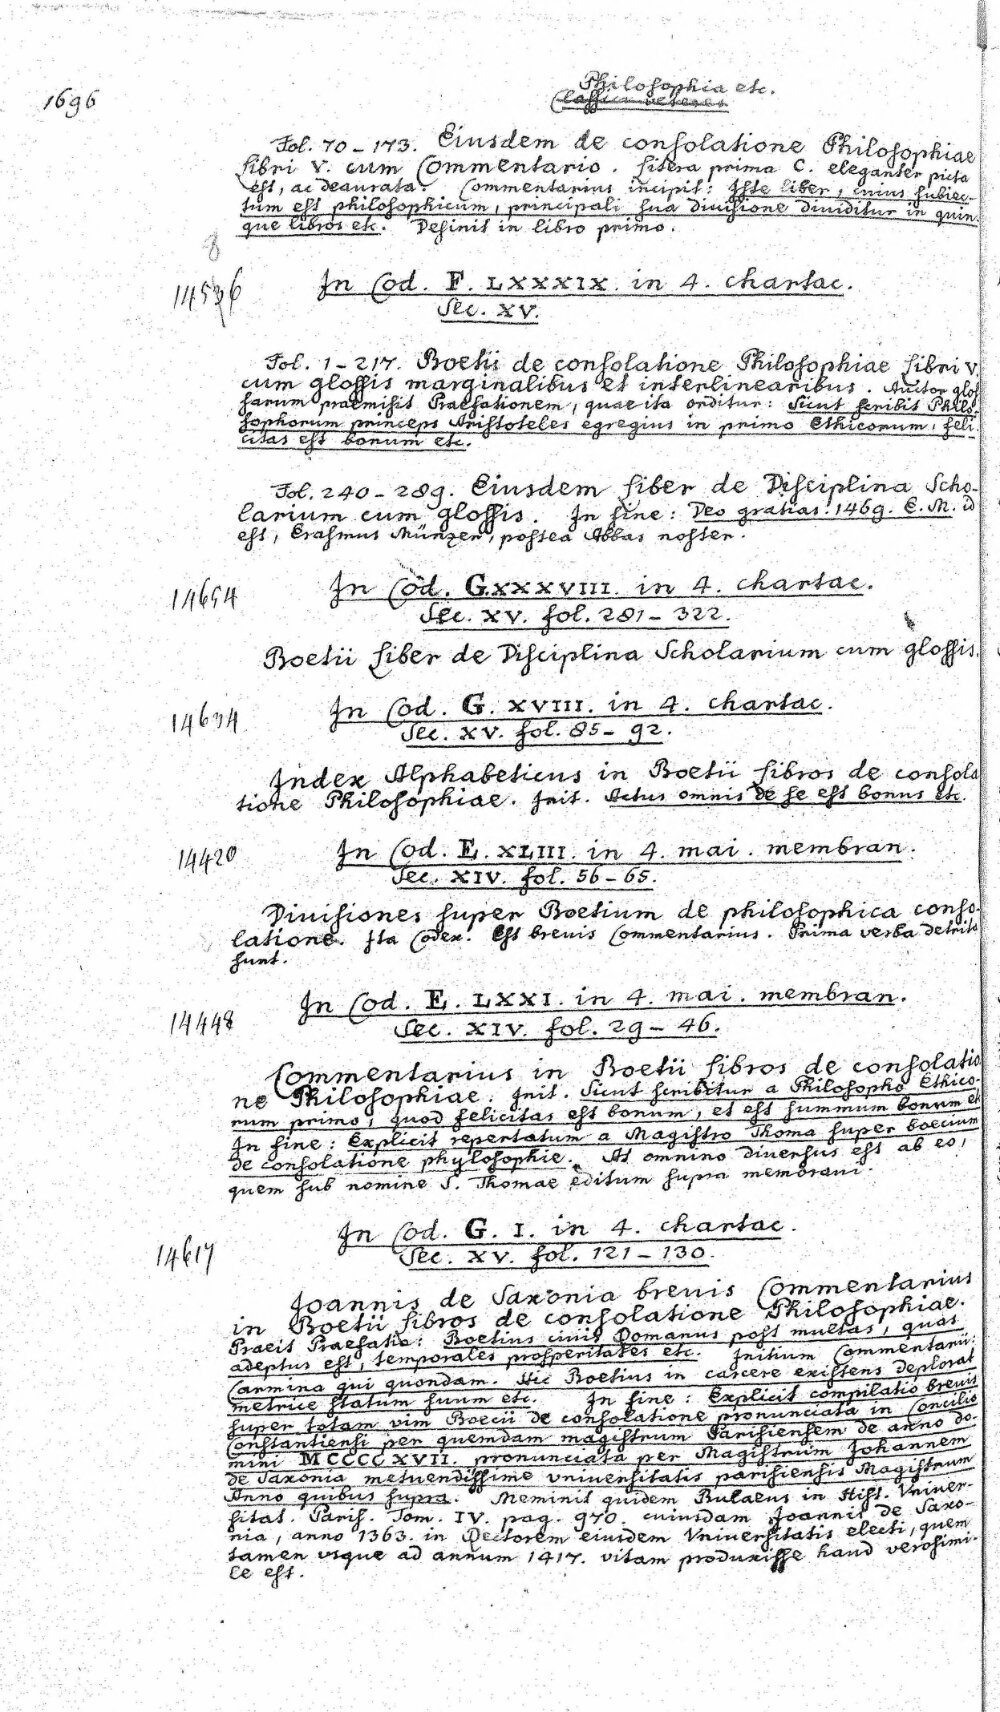 1696
Philosophia etc.
Classici veteres
Fol. 70 – 173. Eiusdem de consolatione Philosophiae
libri V. cum Commentario. Litera prima C. eleganter picta
est, ac deaurata. Commentarius incipit: Iste liber, cuius subiec-
tum est philosophicum, principali sua divisione dividitur in quin-
que libros etc. Desinit in libro primo.
In Cod. F. LXXXIX. in 4. chartac.
14536
Sec. XV.
Fol. 1 – 217. Boetii de consolatione Philosophiae Libri V.
cum glossis marginalibus et interlinearibus. Auctor glos
sarum praemisit Praefationem, quae ita orditur: Sicut scribit Philo-
sophorum princeps Aristoteles egregius in primo Ethicorum, feli-
citas est bonum etc.
Fol. 240 – 289. Eiusdem Liber de Disciplina Scho-
larium cum glossis. In fine: Deo gratias. 1469. E. M. id
est, Erasmus Münzer, postea Abbas noster.
In Cod. G. XXXVIII. in 4. chartac.
14654
Sec. XV. fol. 281 – 322.
Boetii Liber de Disciplina Scholarium cum glossis.
In Cod. G. XVIII. in 4. chartac.
14634
Sec. XV. fol. 85 – 92.
Index Alphabeticus in Boetii Libros de consola
tione Philosophiae. Init. Actus omnis de se est bonus etc.
In Cod. E. XLIII. in 4. mai. membran.
14420
Sec. XIV. fol. 56 – 65.
Divisiones super Boetium de philosophica conso-
latione. Ita Codex. Est brevis Commentarius. Prima verba detrita
sunt.
In Cod. E. LXXI. in 4. mai. membran.
14448
Sec. XIV. fol. 29 – 46.
Commentarius in Boetii Libros de consolatio
ne Philosophiae. Init. Sicut scribitur a Philosopho Ethico-
rum primo, quod felicitas est bonum, et est summum bonum et
In fine: Explicit reportatum a Magistro Thoma super boecium
de consolatione phylosophie. At omnino diversus est ab eo,
quem sub nomine S. Thomae editum supra memoravi.
In Cod. G. I. in 4. chartac.
14617
Sec. XV. fol. 121 – 130.
Joannis de Saxonia brevis Commentarius
in Boetii Libros de consolatione Philosophiae.
Praeit Praefatio: Boetius civis Romanus post multas, quas
adeptus est, temporales prosperitates etc. Initium Commentarii:
Carmina qui quondam. Hic Boetius in carcere existens deplorat
metrice statum suum etc. In fine: Explicit compilatio brevis
super totam vim Boecii de consolatione pronunciata in Concilio
Constantiensi per quemdam magistrum Parisiensem de anno do-
mini MCCCCXVII. pronunciata per Magistrum Johannem
de Saxonia metuendissime universitatis parisiensis Magistrum
Anno quibus supra. Meminit quidem Bulaeus in Hist. Univer-
sitat. Paris. Tom. IV. pag. 970. cuiusdam Joannis de Saxo-
nia, anno 1363. in Rectorem eiusdem Universitatis electi, quem
tamen usque ad annum 1417. vitam produxisse haud verosimi-
le est.